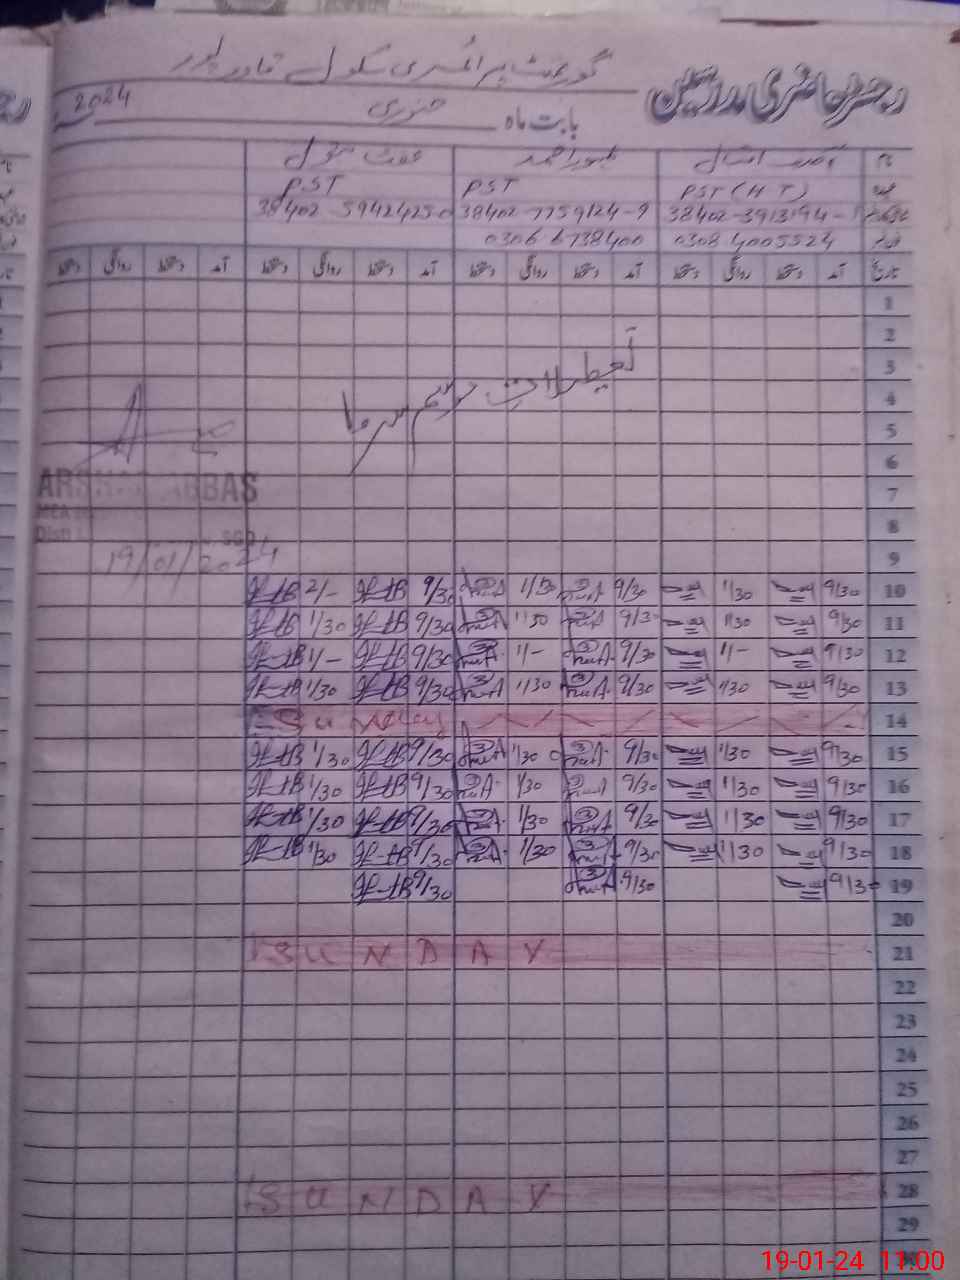 رجسٹر حاضری مدرسین
گورنمنٹ پرائمری سکول قادر پور
بابت ماہ جنوری 2024
PST (HT) PST PST
38402-3913194- 38402-7759124-9 38402-5942425
0308 4005524 0306 6738400
تاریخ آمد دستخط روانگی دستخط آمد دستخط روانگی دستخط آمد دستخط روانگی دستخط آمد دستخط روانگی دستخط
1
2
تعطیلات موسم سرما
3
4
5
6
ARSHAD ABBAS
7
8
9
19/01/2024
10 9/30 1/30 9/30 1/30 9/30 2/-
11 9/30 1/30 9/30 1/30 9/30 1/30
12 9/30 1/- 9/30 1/- 9/30 1/-
13 9/30 1/30 9/30 1/30 9/30 1/30
14 Sunday
15 9/30 1/30 9/30 1/30 9/30 1/30
16 9/30 1/30 9/30 1/30 9/30 1/30
17 9/30 1/30 9/30 1/30 9/30 1/30
18 9/30 1/30 9/30 1/30 9/30 1/30
19 9/30 9/30 9/30
20
21 SUNDAY
22
23
24
25
26
27
28 SUNDAY
29
19-01-24 11:00